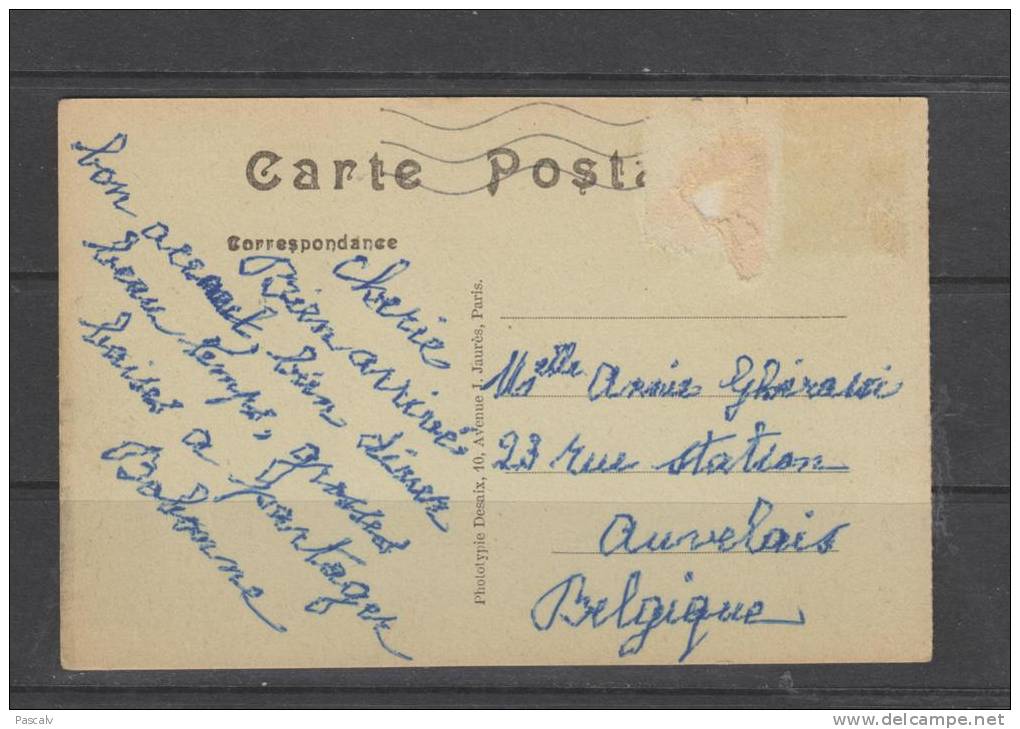 Carte Posta
Correspondance
Cherie
Bien arrivés
bon accueil, bien diner
beau temps, grosses
baises a partager
Bobonne
Phototypie Desaix, 10, Avenue J. Jaurès, Paris.
Melle Annie
23 rue Station
Auvelais
Belgique
Pascalv
www.delcampe.net